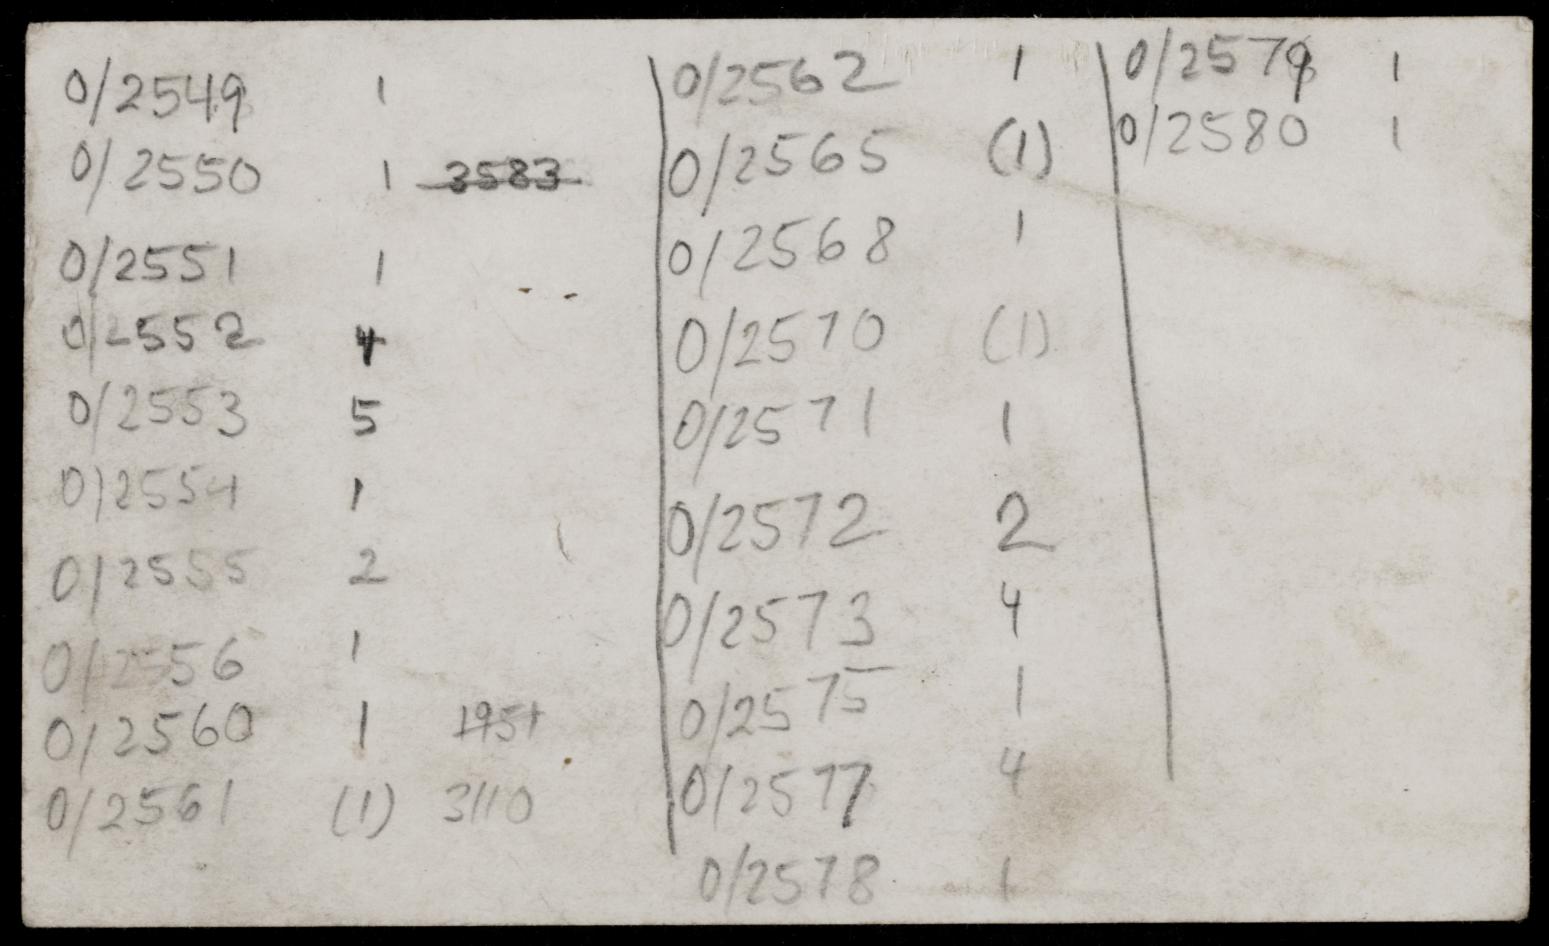 0/2549 1
0/2550 1 3583
0/2551 1
0/2552 4
0/2553 5
0/2554 1
0/2555 2
0/2556 1
0/2560 1 1951
0/2561 (1) 3110
0/2562 1
0/2565 (1)
0/2568 1
0/2570 (1)
0/2571 1
0/2572 2
0/2573 4
0/2575 1
0/2577 4
0/2578 1
0/2579 1
0/2580 1